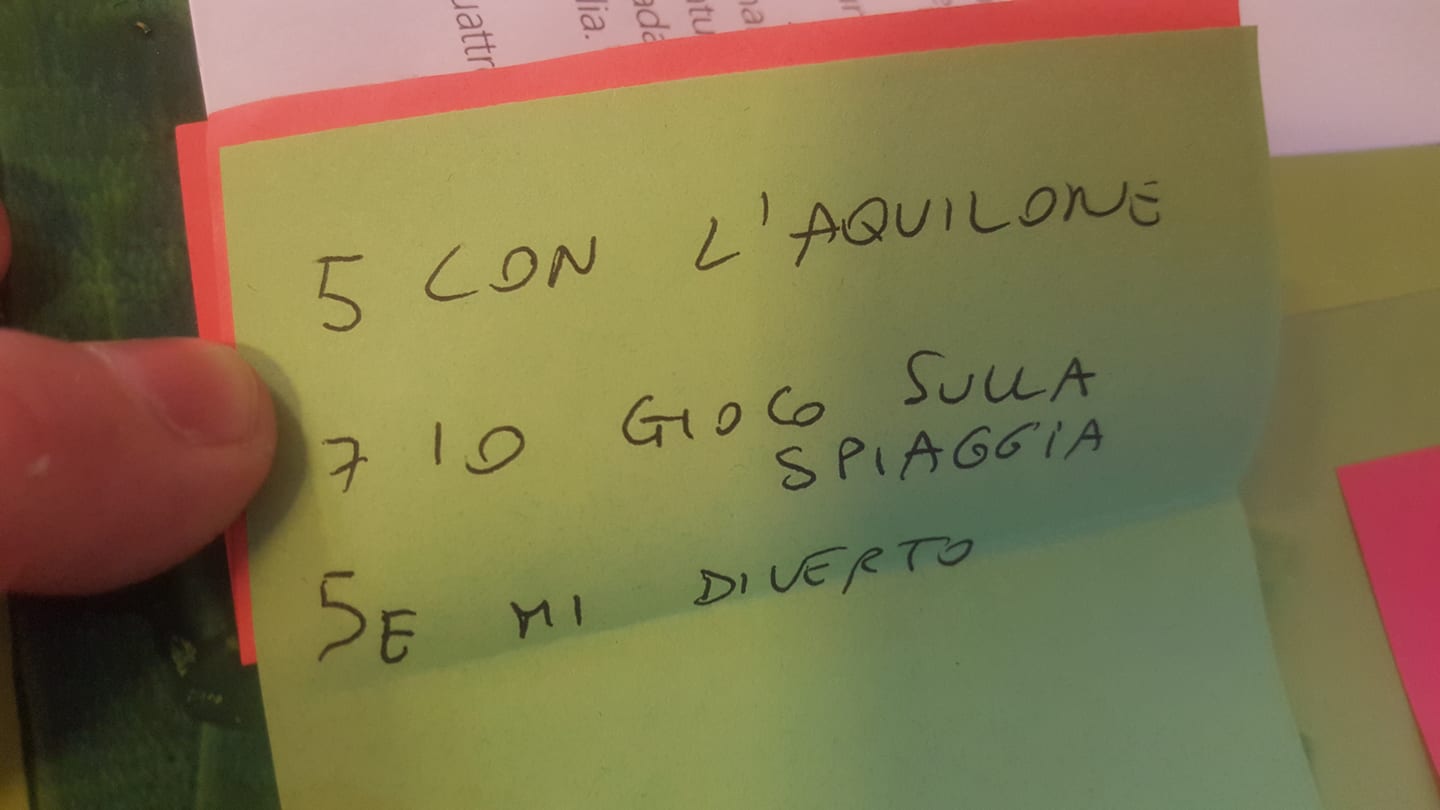 uattr
lia.
5 CON L'AQUILONE
7 IO GIOCO SULLA
SPIAGGIA
5 E MI DIVERTO